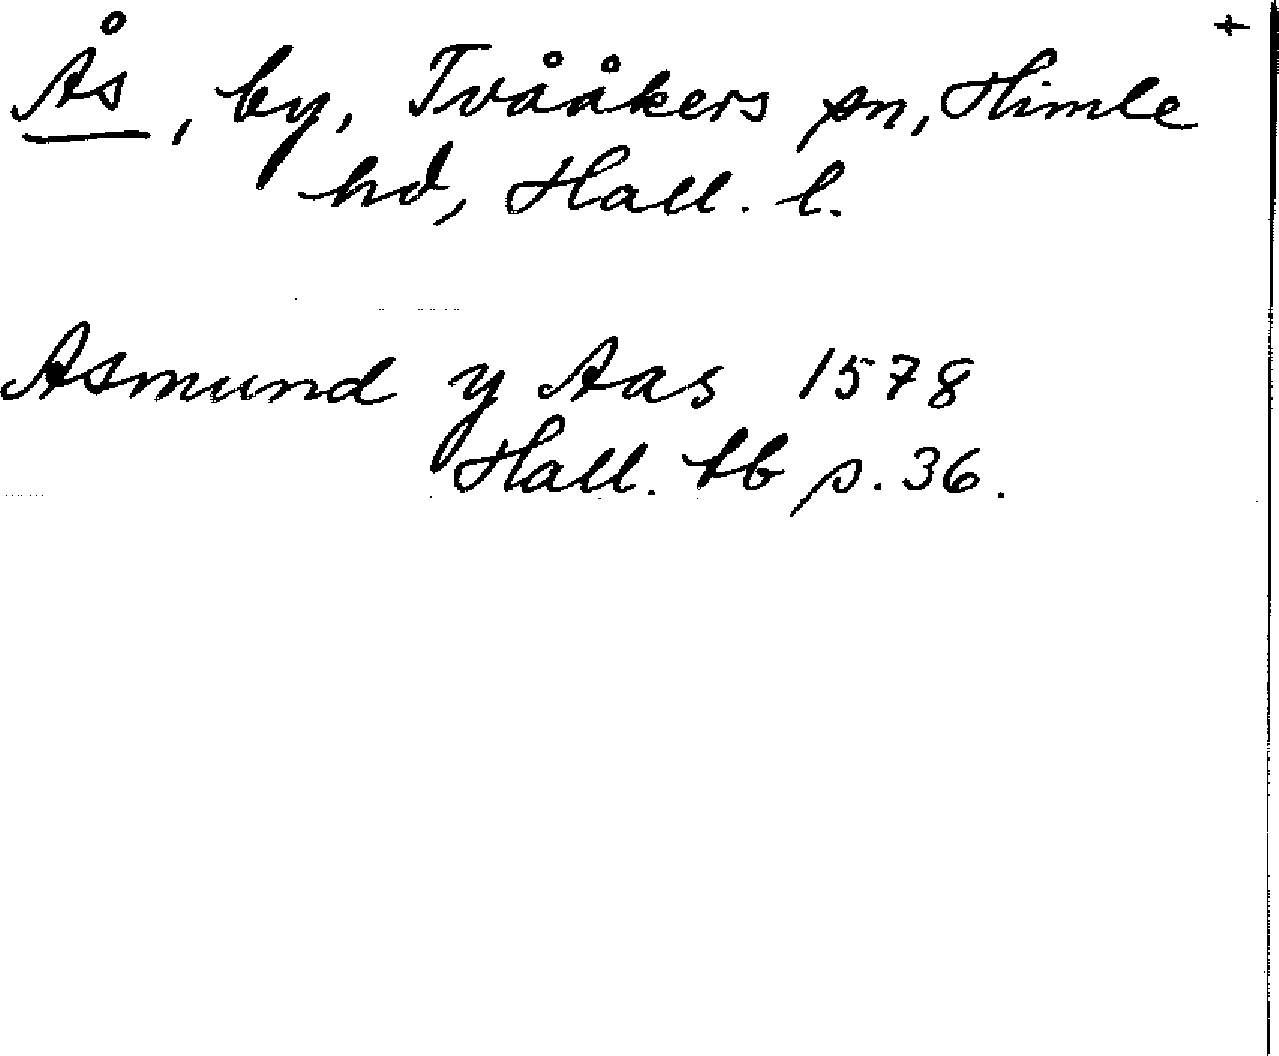 Ås, by, Tvååkers sn, Himle +
hd, Hall. l.
Asmund y Aas 1578
Hall. tb s. 36.